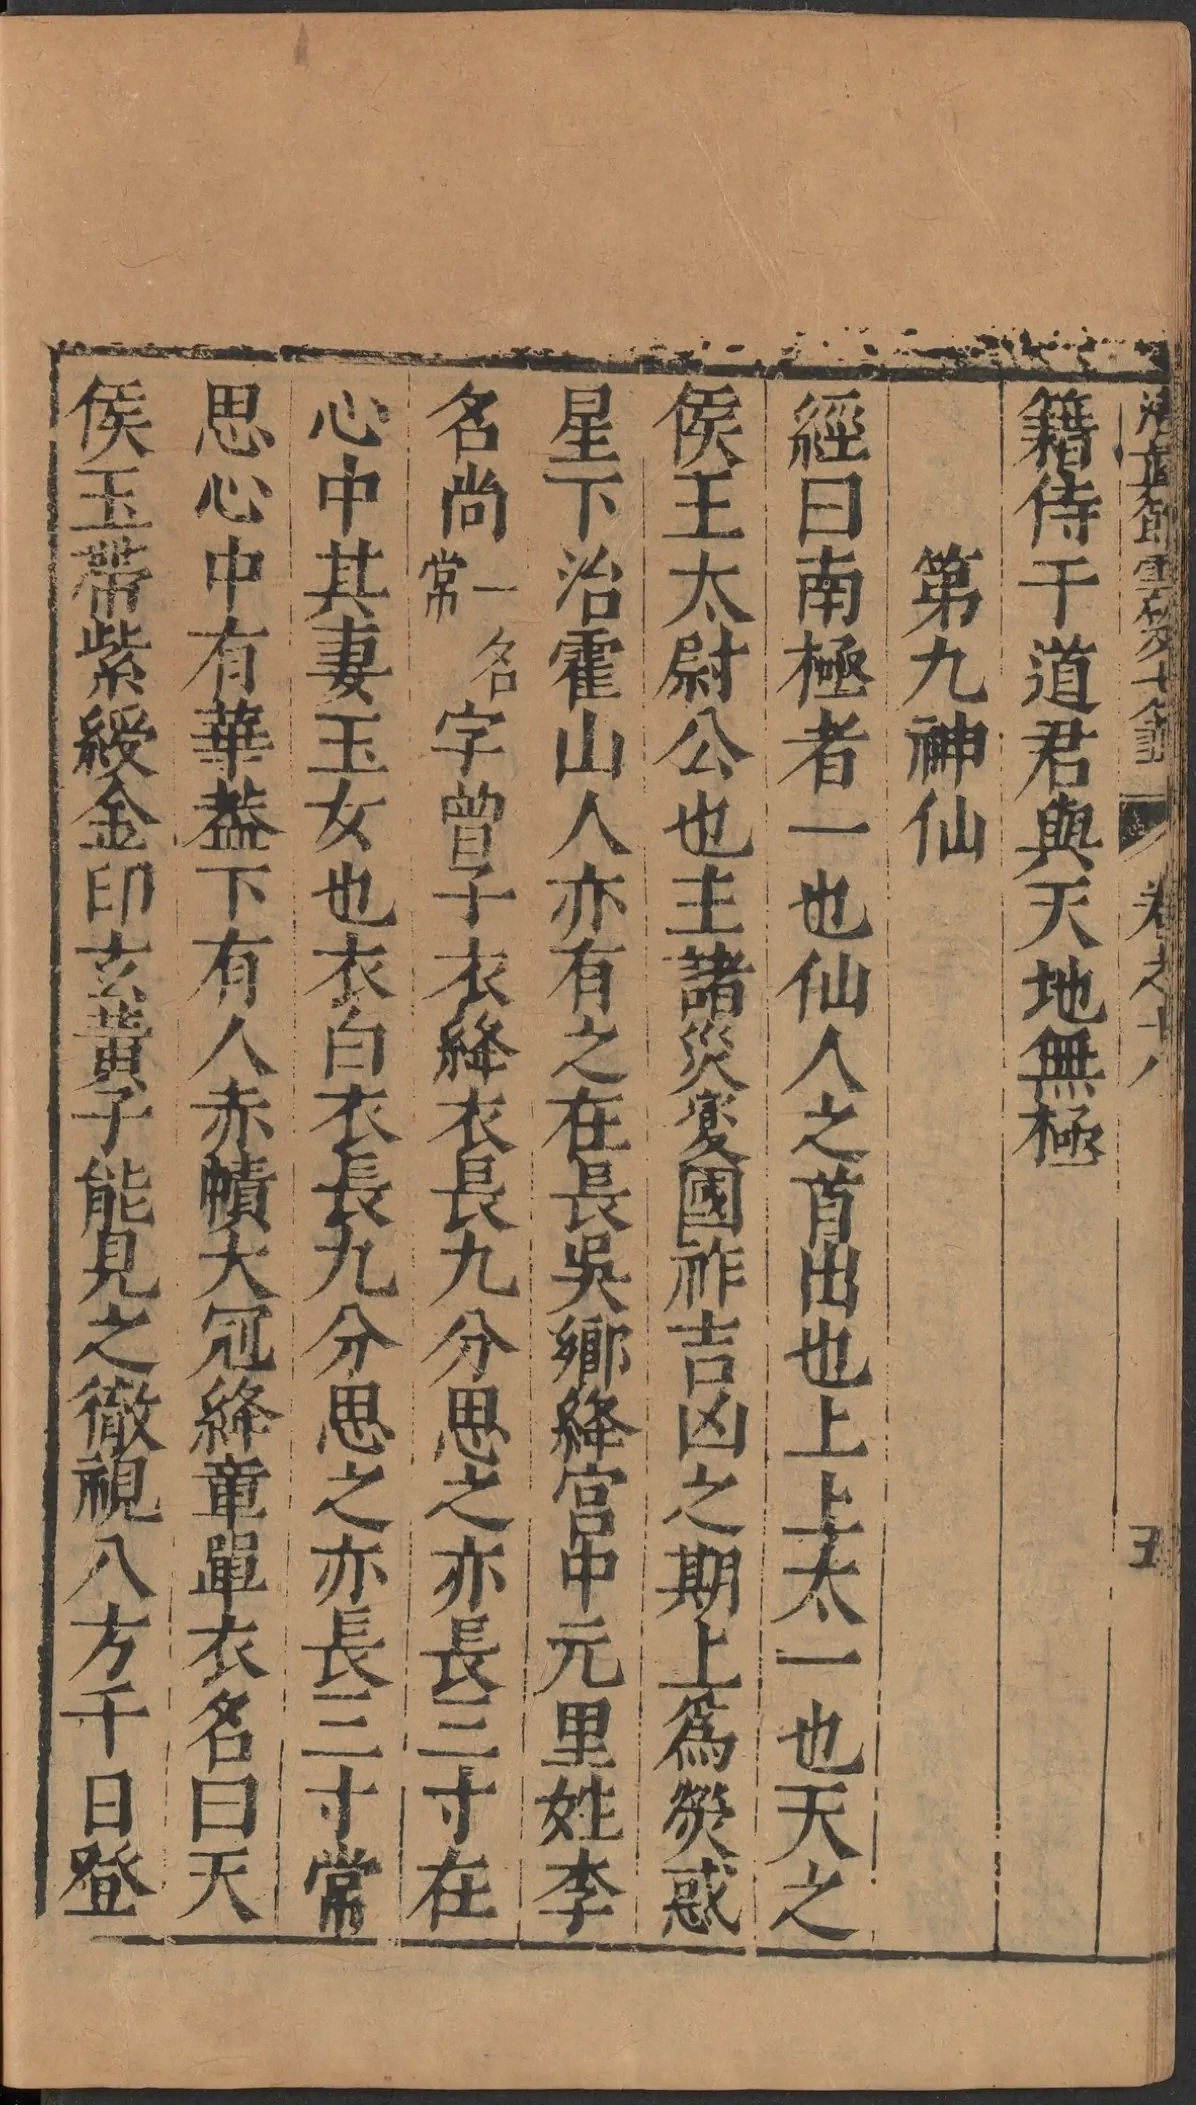 卷之十八
五
籍侍于道君與天地無極
第九神仙
經曰南極者一也仙人之首出也上上太一也天之
侯王太尉公也主諸災変國祚吉凶之期上為熒惑
星下治霍山人亦有之在長吳鄉絳宮中元里姓李
名尚一名常字曾子衣絳衣長九分思之亦長三寸在
心中其妻玉女也衣白衣長九分思之亦長三寸常
思心中有華葢下有人赤幘大冠絳章單衣名曰天
侯玉帶紫綬金印玄黃子能見之徹視八方千日登